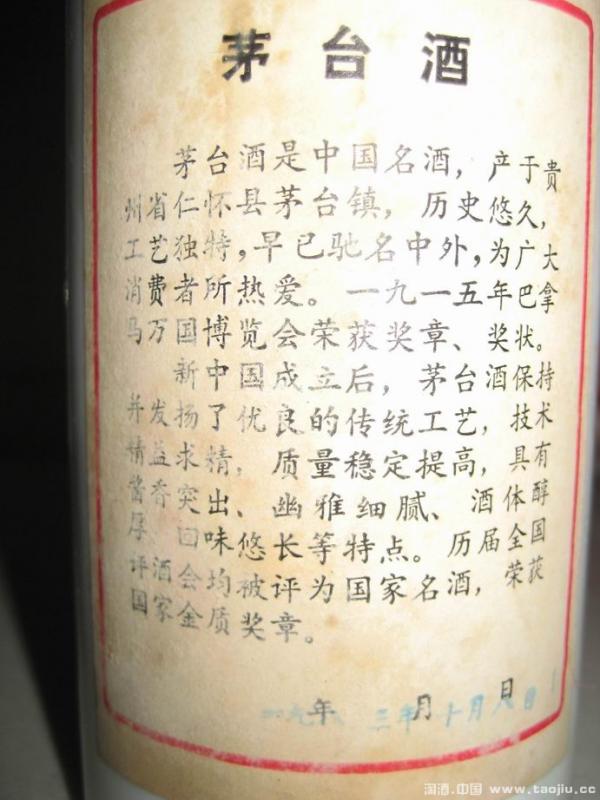 茅台酒
茅台酒是中国名酒，产于贵
州省仁怀县茅台镇，历史悠久，
工艺独特，早已驰名中外，为广大
消费者所热爱。一九一五年巴拿
马万国博览会荣获奖章、奖状。
新中国成立后，茅台酒保持
并发扬了优良的传统工艺，技术
精益求精，质量稳定提高，具有
酱香突出、幽雅细腻、酒体醇
厚、回味悠长等特点。历届全国
评酒会均被评为国家名酒，荣获
国家金质奖章。
年 月 日
一九八三年十月八日
淘酒.中国 www.taojiu.cc